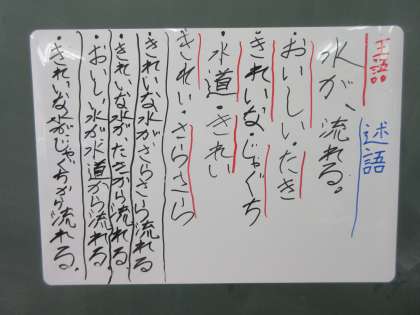 主語
述語
水が、流れる。
・おいしい・たき
・きれいなじゃぐち
・水道・きれい
きれい・さらさら
・きれいな水がさらさら流れる
・きれいな水がたきから流れる
・おいしい水が水道から流れる。
・きれいな水がじゃぐちから流れる。